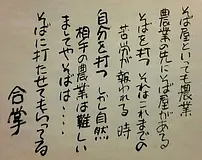 そば屋といっても農業
農業の先にそば屋がある
そばを打つ それはこれまでの
苦労が報われる時
自分を打つ しかし自然
相手の農業は難しい
ましてやそばは…
そばに打たせてもらってる
合掌